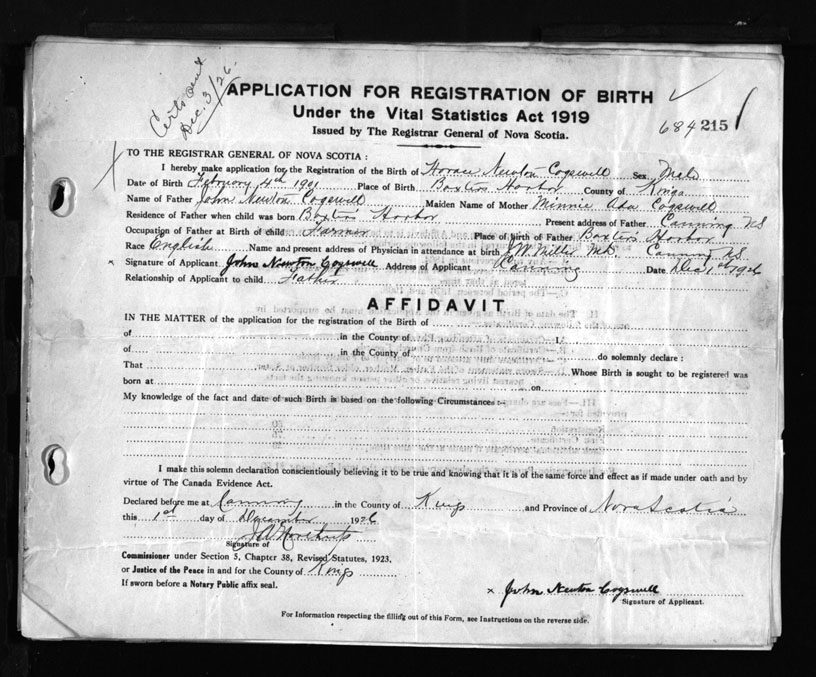 Certs sent
Dec. 3/26.
APPLICATION FOR REGISTRATION OF BIRTH
Under the Vital Statistics Act 1919
Issued by The Registrar General of Nova Scotia.
684 215
TO THE REGISTRAR GENERAL OF NOVA SCOTIA :
I hereby make application for the Registration of the Birth of Horace Newton Cogswell Sex Male
Date of Birth February 4th 1901 Place of Birth Baxters Harbor County of Kings
Name of Father John Newton Cogswell Maiden Name of Mother Minnie Ada Cogswell
Residence of Father when child was born Baxters Harbor Present address of Father Canning NS
Occupation of Father at Birth of child Farmer Place of birth of Father Baxters Harbor
Race English Name and present address of Physician in attendance at birth J.W. Miller M.D. Canning NS
x Signature of Applicant John Newton Cogswell Address of Applicant Canning Date Dec 1st 1926
Relationship of Applicant to child Father
AFFIDAVIT
IN THE MATTER of the application for the registration of the Birth of
of in the County of I.
of in the County of do solemnly declare :
That Whose Birth is sought to be registered was
born at on
My knowledge of the fact and date of such Birth is based on the following Circumstances :-
I make this solemn declaration conscientiously believing it to be true and knowing that it is of the same force and effect as if made under oath and by
virtue of The Canada Evidence Act.
Declared before me at Canning in the County of Kings and Province of Nova Scotia
this 1st day of December 1926
Signature of
Commissioner under Section 5, Chapter 38, Revised Statutes, 1923.
or Justice of the Peace in and for the County of Kings
If sworn before a Notary Public affix seal.
x John Newton Cogswell
Signature of Applicant.
For Information respecting the filling out of this Form, see Instructions on the reverse side.